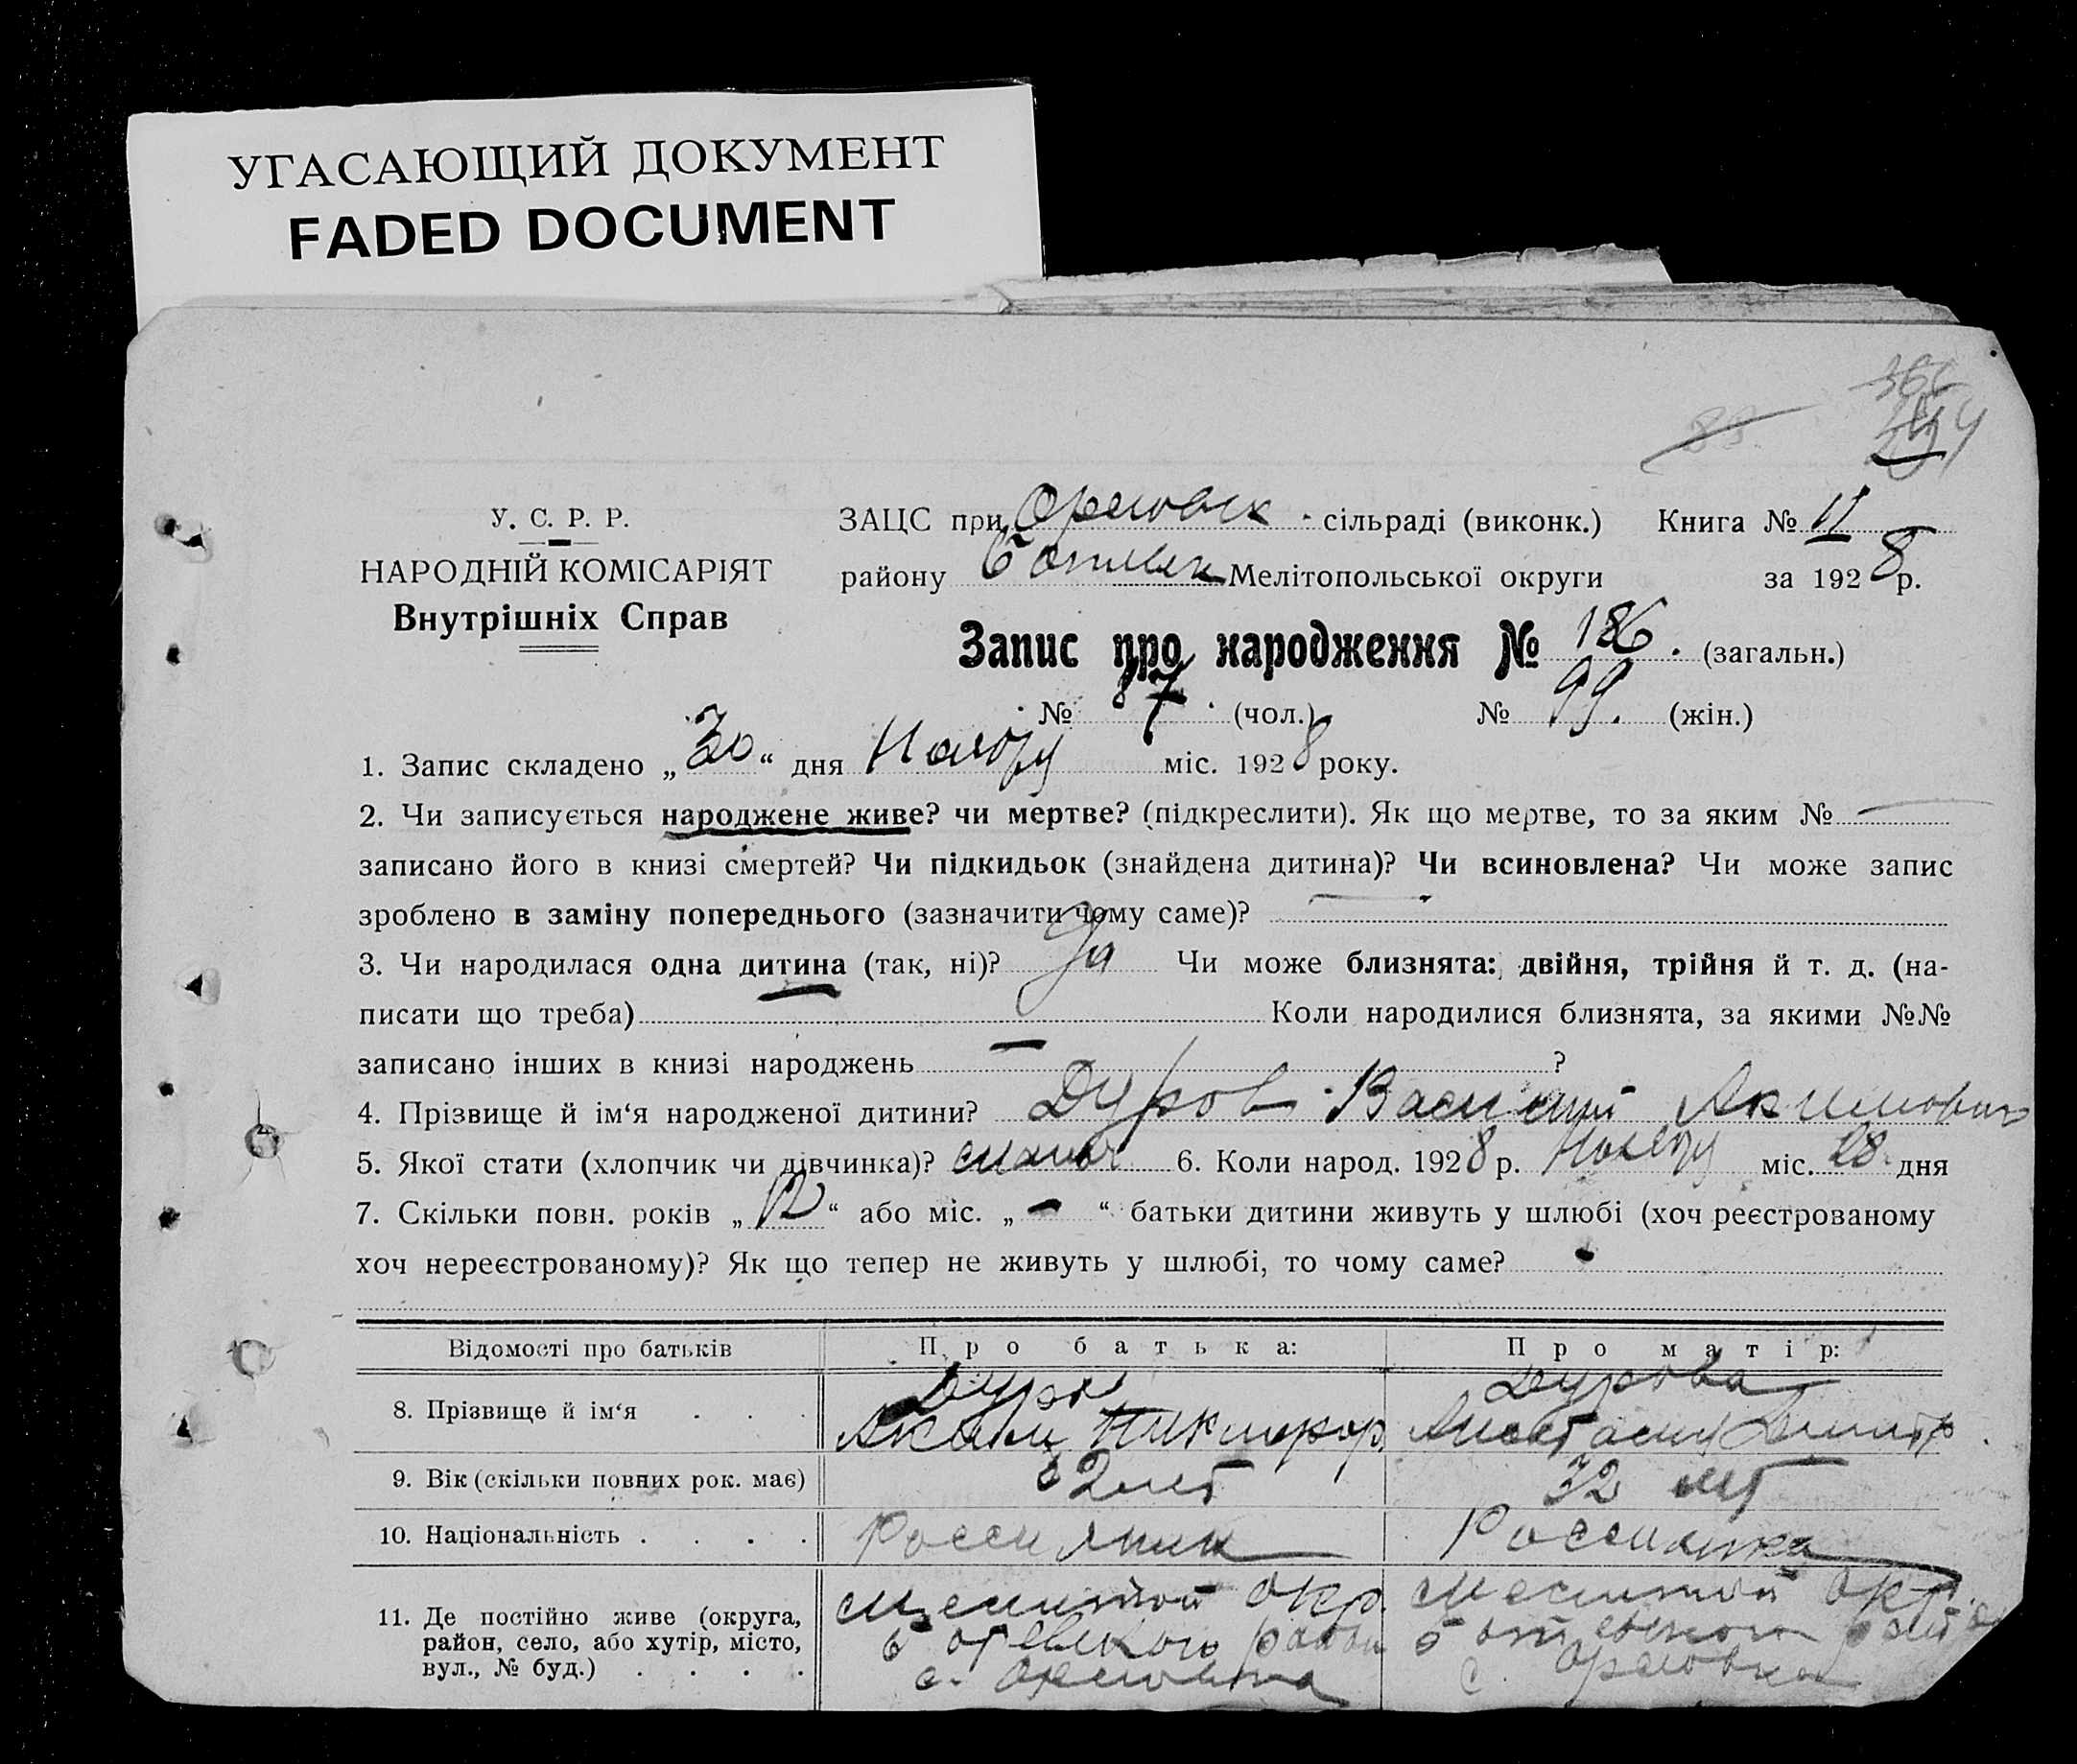 УГАСАЮЩИЙ ДОКУМЕНТ
FADED DOCUMENT
У. С. Р. Р.
НАРОДНІЙ КОМІСАРІЯТ
Внутрішніх Справ
ЗАЦС при Орловск сільраді (виконк.) Книга № II
району Ботиевск Мелітопольської округи за 1928 р.
Запис про народження № 186. (загальн.)
№ 87 (чол.) № 99. (жін.)
1. Запис складено „30“ дня міс. 1928 року.
2. Чи записується народжене живе? чи мертве? (підкреслити). Як що мертве, то за яким № —
записано його в книзі смертей? Чи підкидьок (знайдена дитина)? Чи всиновлена? Чи може запис
зроблено в заміну попереднього (зазначити чому саме)? —
3. Чи народилася одна дитина (так, ні)? Да Чи може близнята: двійня, трійня й т. д. (на-
писати що треба) Коли народилися близнята, за якими №№
записано інших в книзі народжень — ?
4. Прізвище й ім‘я народженої дитини? Дуров Василий Акимович
5. Якої стати (хлопчик чи дівчинка)? 6. Коли народ. 1928 р. міс. 28 дня
7. Скільки повн. років „12“ або міс. „—“ батьки дитини живуть у шлюбі (хоч реєстрованому
хоч нереєстрованому)? Як що тепер не живуть у шлюбі, то чому саме?
Відомості про батьків Про батька: Про матір:
8. Прізвище й ім‘я . . . Дуров Дурова
Аким Никифор. Анастасия Дмитр.
9. Вік (скільки повних рок. має) 32 лет 32 лет
10. Національність . . . . Россиянин Россиянка
11. Де постійно живе (округа, район, село, або хутір, місто, вул., № буд.) . . . . Мелитоп окр. Мелитоп окр.
Ботевского район Ботиевского рай
с. Орловка с. Орловка